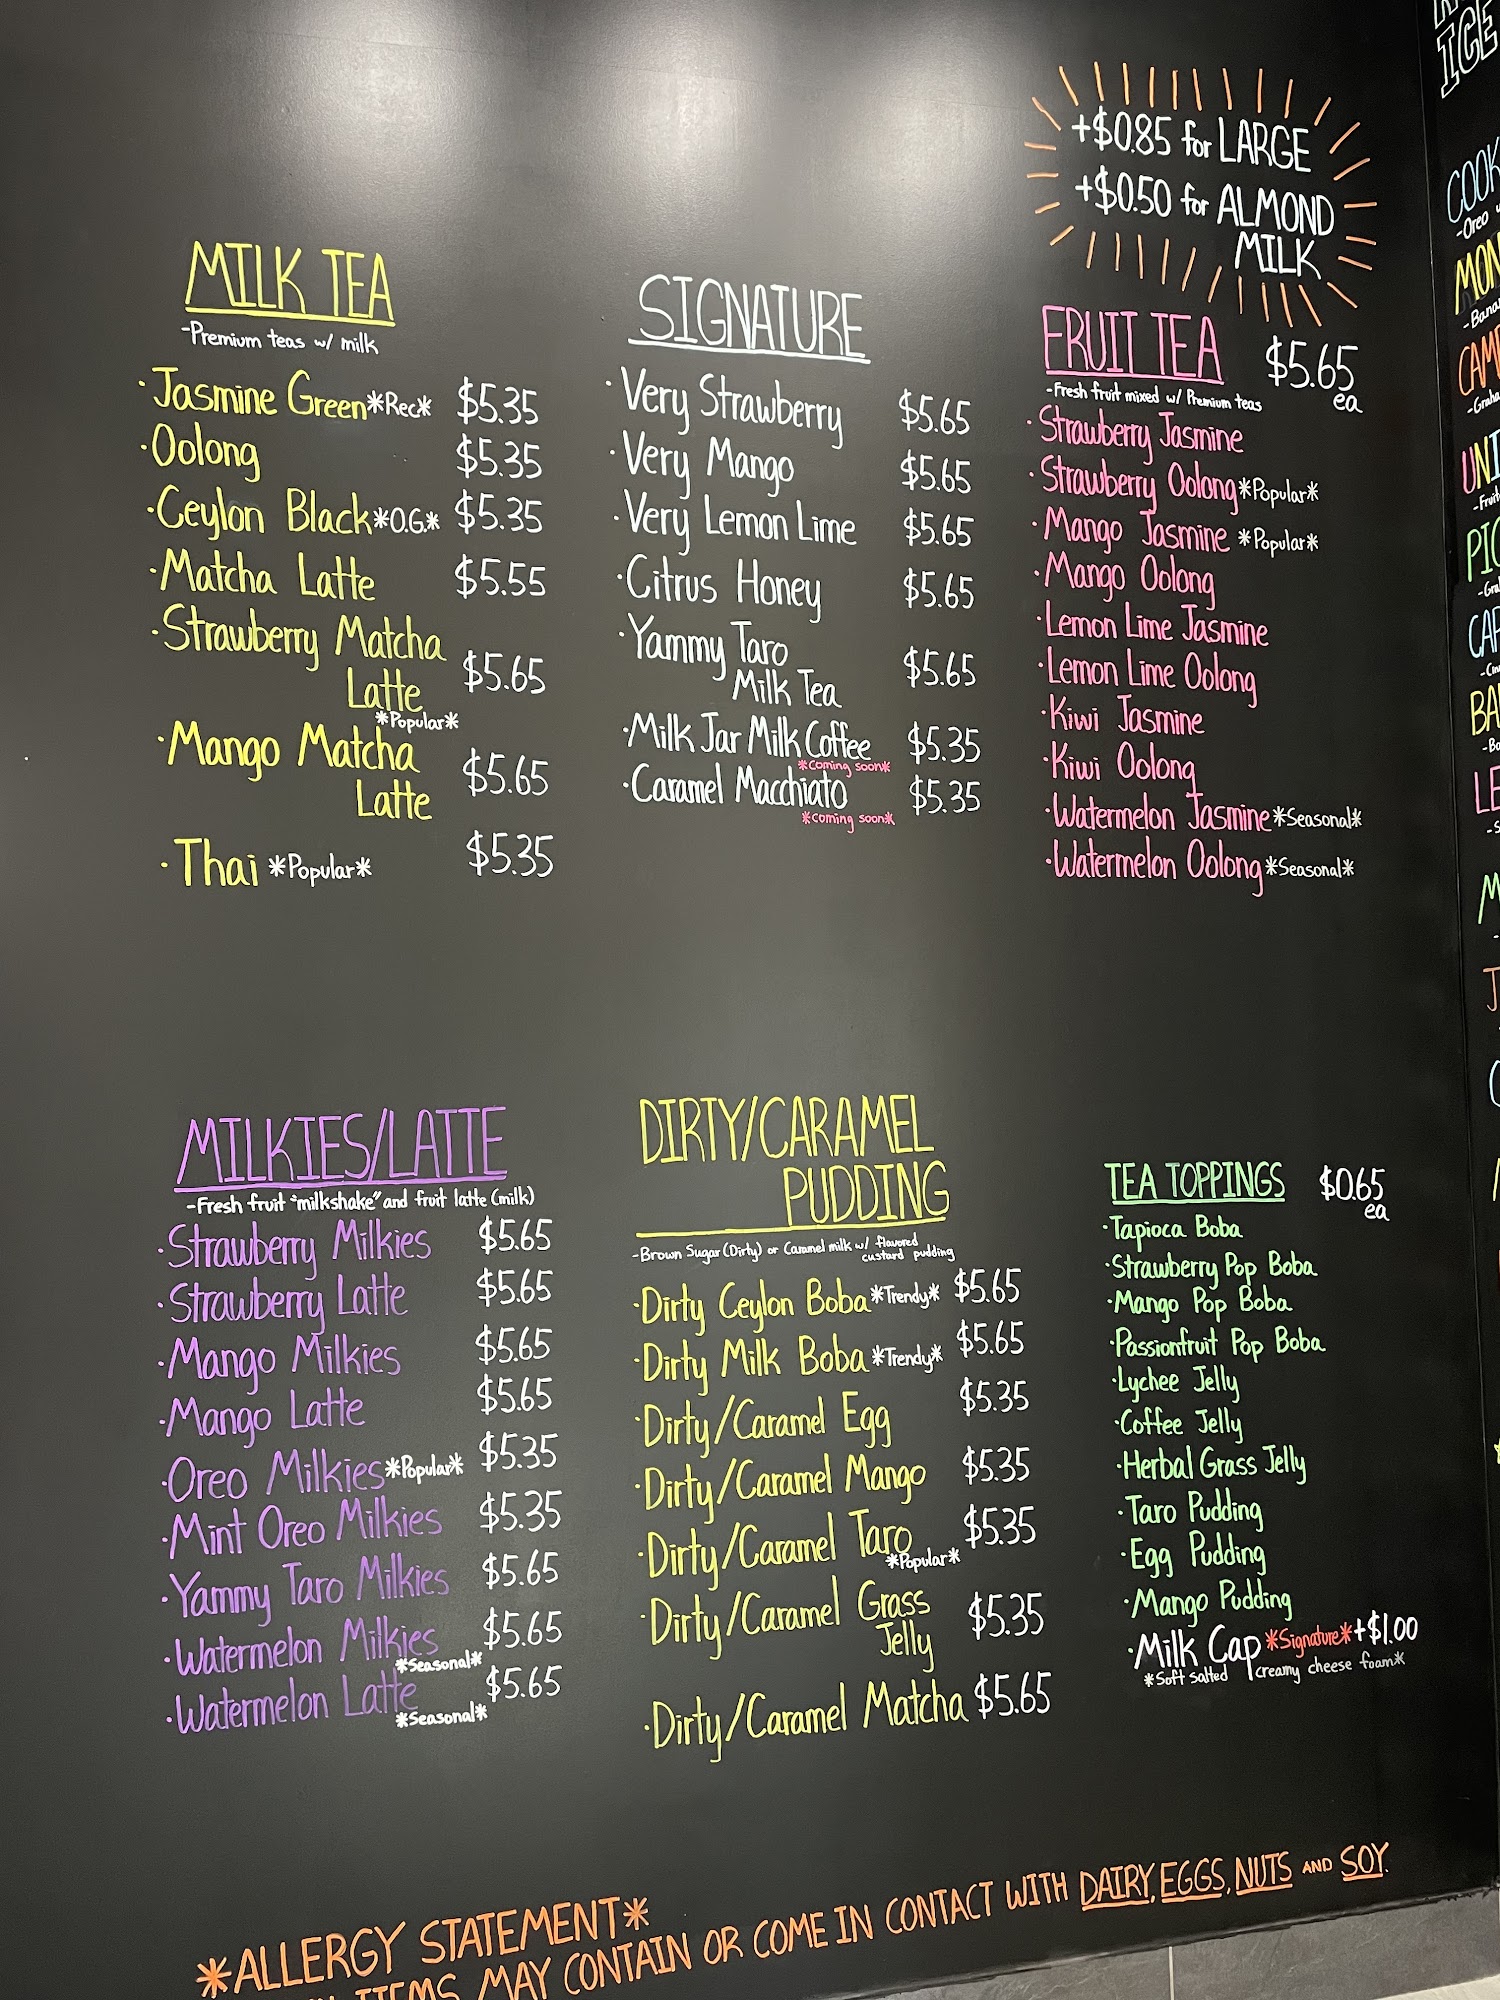 +$0.85 for LARGE
+$0.50 for ALMOND
MILK
MILK TEA
-Premium teas w/ milk
·Jasmine Green *Rec* $5.35
·Oolong $5.35
·Ceylon Black *O.G.* $5.35
·Matcha Latte $5.55
·Strawberry Matcha
Latte $5.65
*Popular*
·Mango Matcha
Latte $5.65
·Thai *Popular* $5.35
SIGNATURE
·Very Strawberry $5.65
·Very Mango $5.65
·Very Lemon Lime $5.65
·Citrus Honey $5.65
·Yammy Taro
Milk Tea $5.65
·Milk Jar Milk Coffee $5.35
*Coming soon*
·Caramel Macchiato $5.35
*Coming soon*
FRUIT TEA $5.65
ea
-Fresh fruit mixed w/ Premium teas
·Strawberry Jasmine
·Strawberry Oolong *Popular*
·Mango Jasmine *Popular*
·Mango Oolong
·Lemon Lime Jasmine
·Lemon Lime Oolong
·Kiwi Jasmine
·Kiwi Oolong
·Watermelon Jasmine *Seasonal*
·Watermelon Oolong *Seasonal*
MILKIES/LATTE
-Fresh fruit "milkshake" and fruit latte (milk)
·Strawberry Milkies $5.65
·Strawberry Latte $5.65
·Mango Milkies $5.65
·Mango Latte $5.65
·Oreo Milkies *Popular* $5.35
·Mint Oreo Milkies $5.35
·Yammy Taro Milkies $5.65
·Watermelon Milkies $5.65
*Seasonal*
·Watermelon Latte $5.65
*Seasonal*
DIRTY/CARAMEL
PUDDING
-Brown Sugar (Dirty) or Caramel milk w/ flavored
custard pudding
·Dirty Ceylon Boba *Trendy* $5.65
·Dirty Milk Boba *Trendy* $5.65
·Dirty/Caramel Egg $5.35
·Dirty/Caramel Mango $5.35
·Dirty/Caramel Taro $5.35
*Popular*
·Dirty/Caramel Grass
Jelly $5.35
·Dirty/Caramel Matcha $5.65
TEA TOPPINGS $0.65
ea
·Tapioca Boba
·Strawberry Pop Boba
·Mango Pop Boba
·Passionfruit Pop Boba
·Lychee Jelly
·Coffee Jelly
·Herbal Grass Jelly
·Taro Pudding
·Egg Pudding
·Mango Pudding
·Milk Cap *Signature* +$1.00
*Soft salted creamy cheese foam*
*ALLERGY STATEMENT*
ITEMS MAY CONTAIN OR COME IN CONTACT WITH DAIRY, EGGS, NUTS AND SOY.
ICE
-Oreo